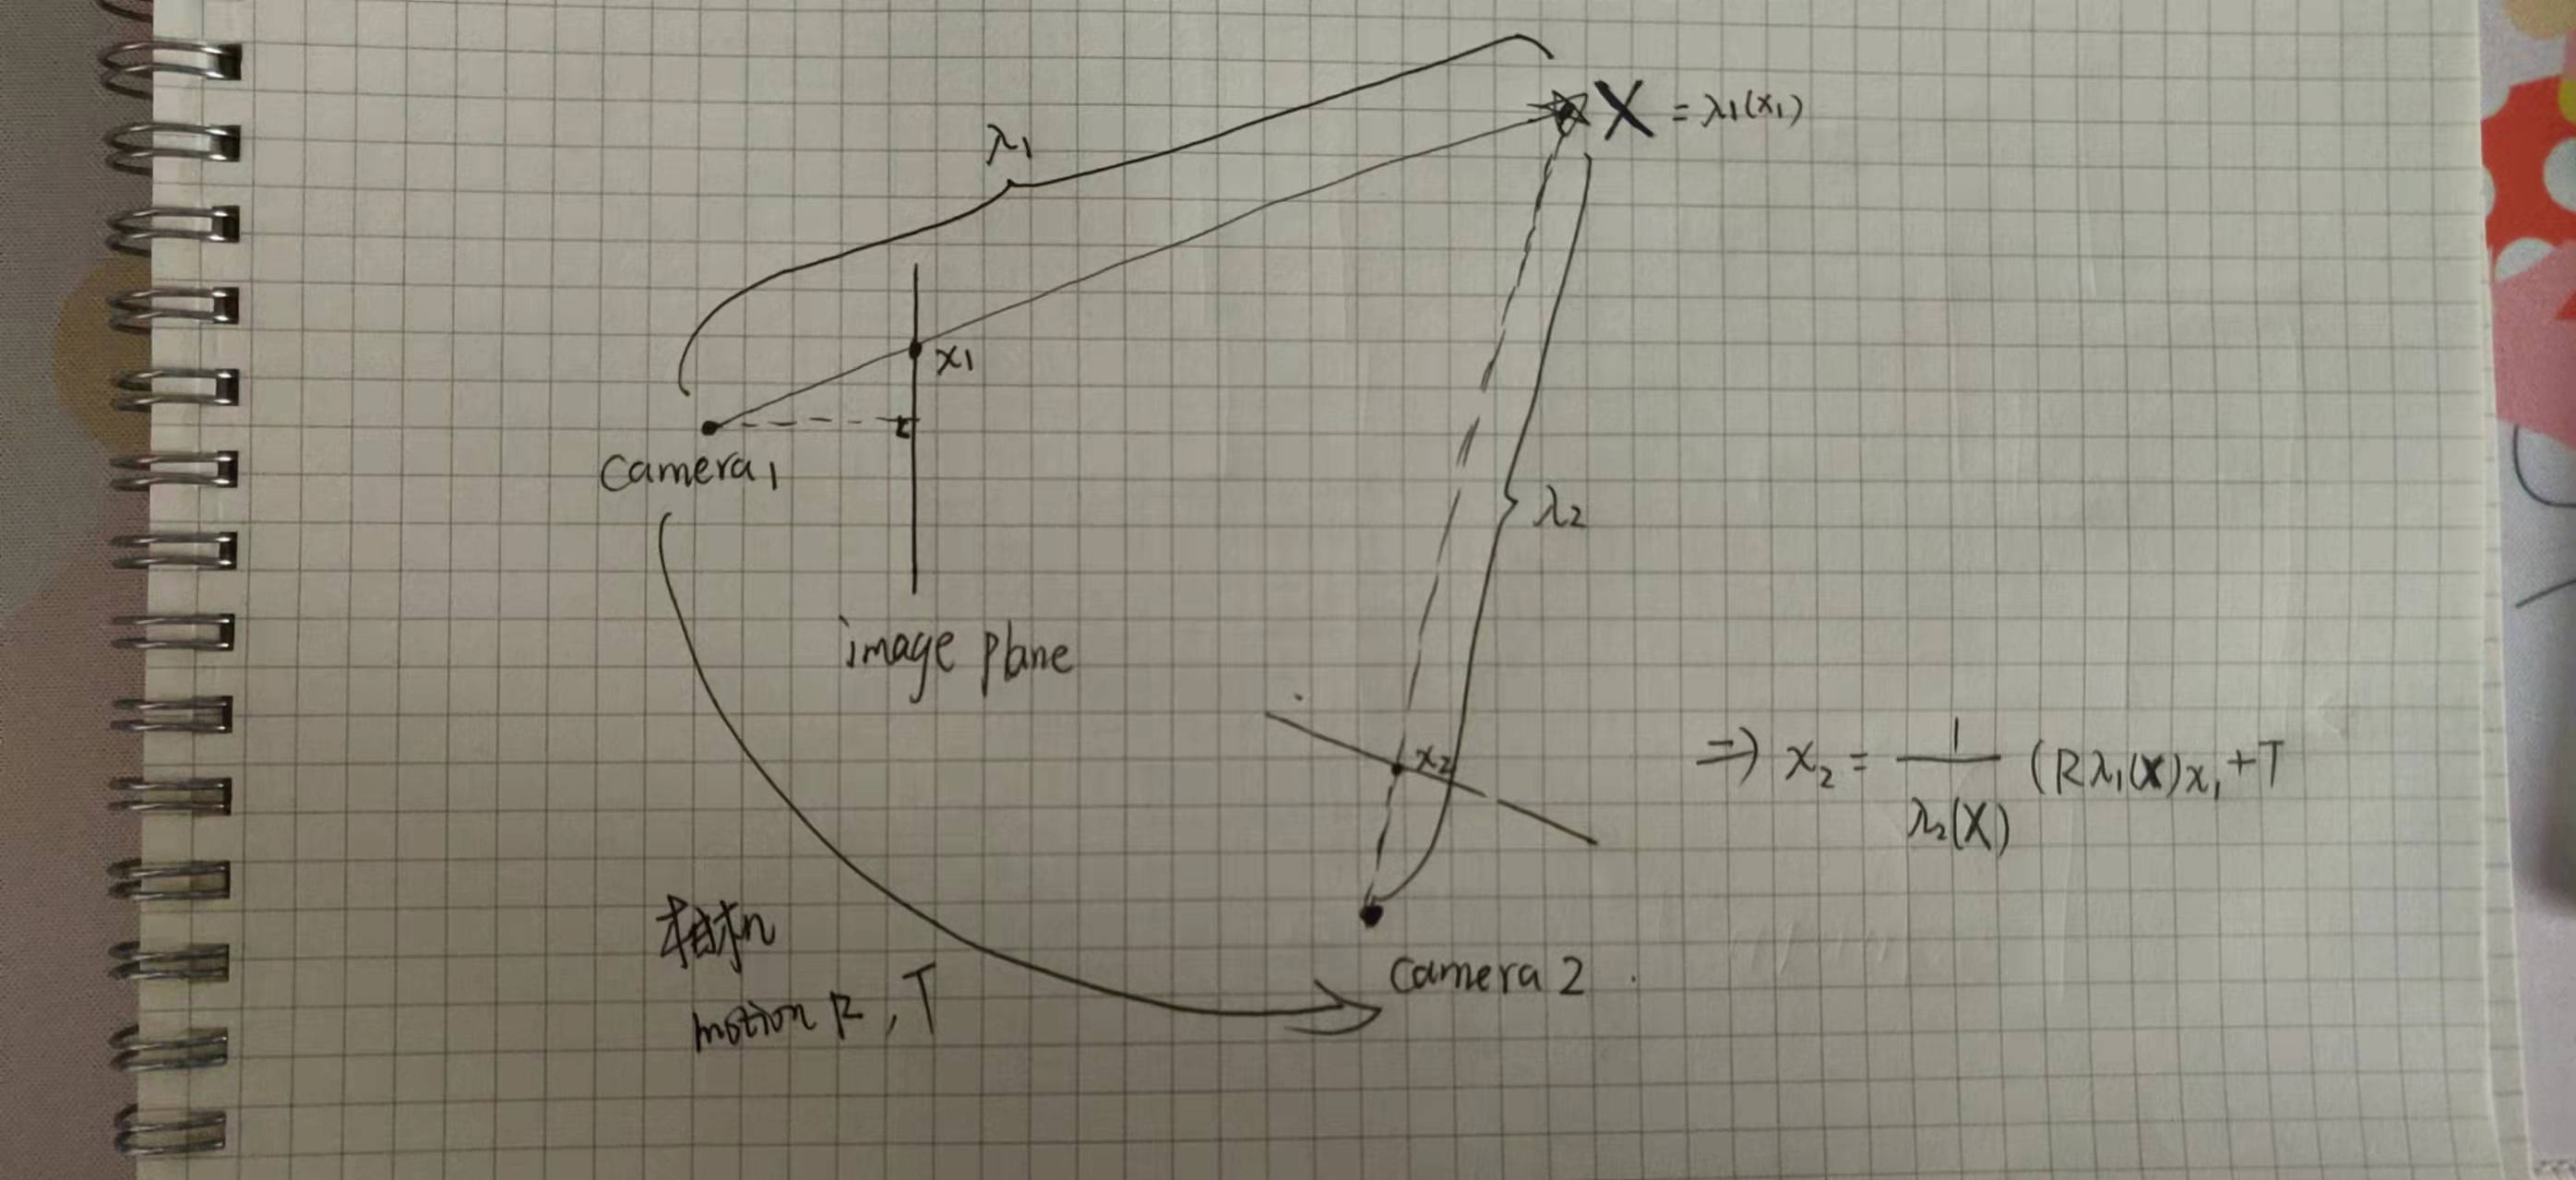 λ1
X = λ1(x1)
x1
Camera1
λ2
image plane
x2
⇒ x2 = 1/λ2(X) (Rλ1(X)x1+T
相机
motion R, T
Camera 2